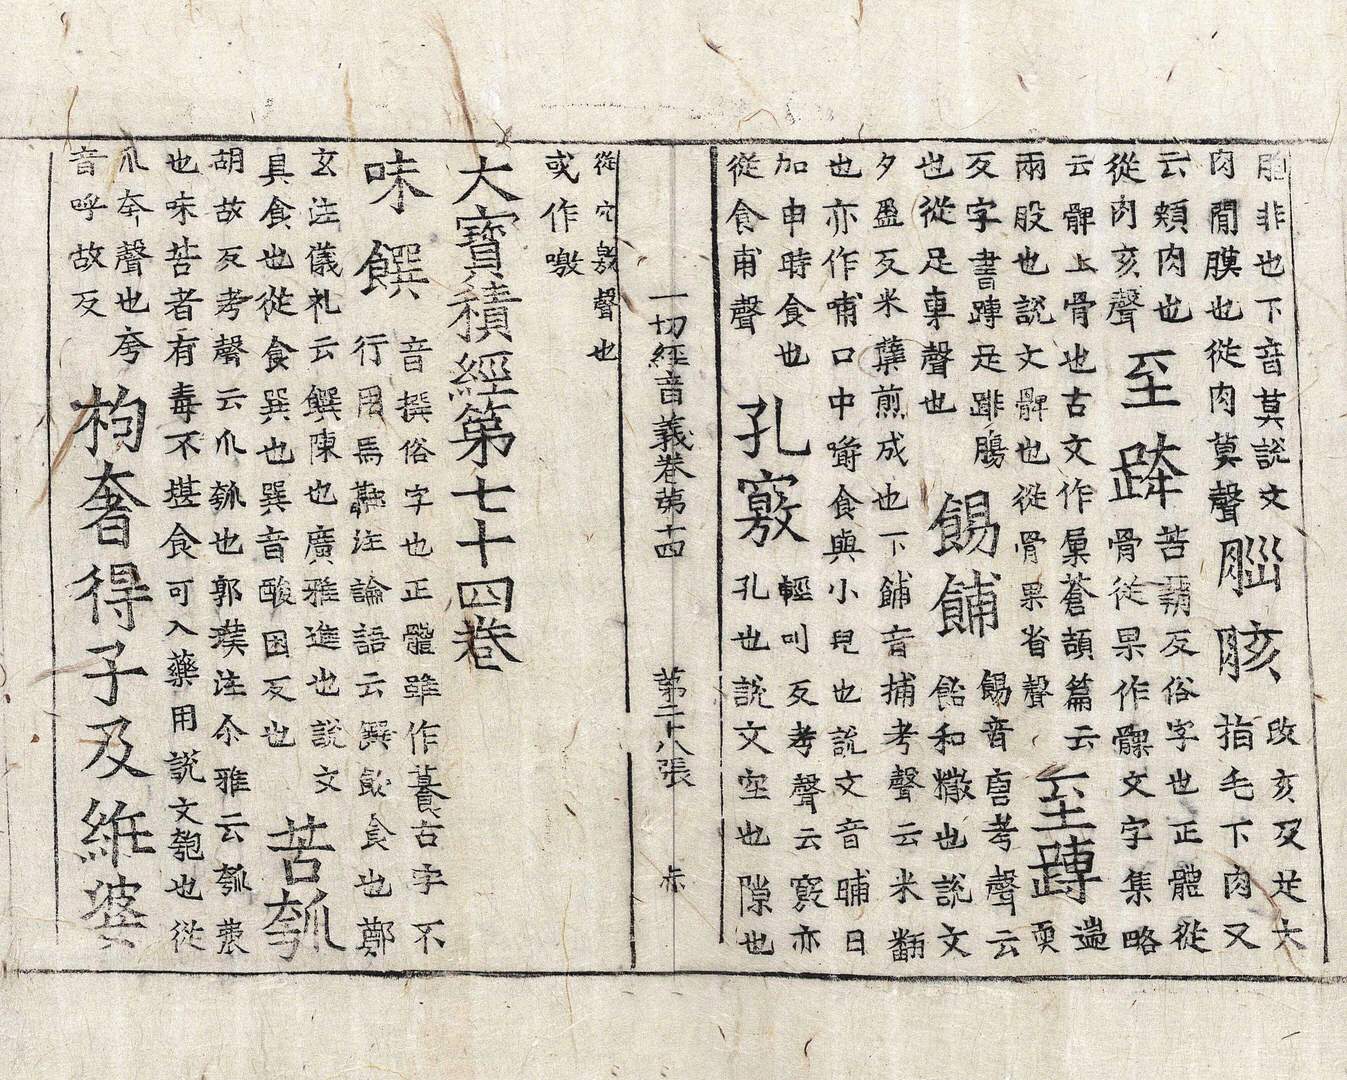 胞非也下音莫說文
肉閒膜也從肉莫聲
腦胲
改亥反足大
指毛下肉又
云頰肉也
從肉亥聲
至跨
苦㶚反俗字也正體從
骨從果作髁文字集略
云髀上骨也古文作蒼頡篇云
兩股也說文髀也從骨果省聲
至䠪
遄
耎
反字書䠪足腓腸
也從足專聲也
餳餔
餳音唐考聲云
飴和糤也說文
夕盈反米櫱煎成也下餔音捕考聲云米翻
也亦作哺口中嚼食與小兒也說文音晡日
加申時食也
從食甫聲
孔竅
輕叫反考聲云竅亦
孔也說文空也隙也
一切經音義卷第十四 第二十八張 赤
從穴敫聲也
或作噭
大寶積經第七十四卷
味饌
音撰俗字也正體雖作籑古字不
行用馬融注論語云饌飲食也鄭
玄注儀礼云饌陳也廣雅進也說文
具食也從食巽也巽音酸困反也
苦瓠
胡故反考聲云瓜瓠也郭璞注尒雅云瓠蔞
也味苦者有毒不堪食可入藥用說文匏也從
瓜夸聲也夸
音呼故反
枸奢得子及維婆